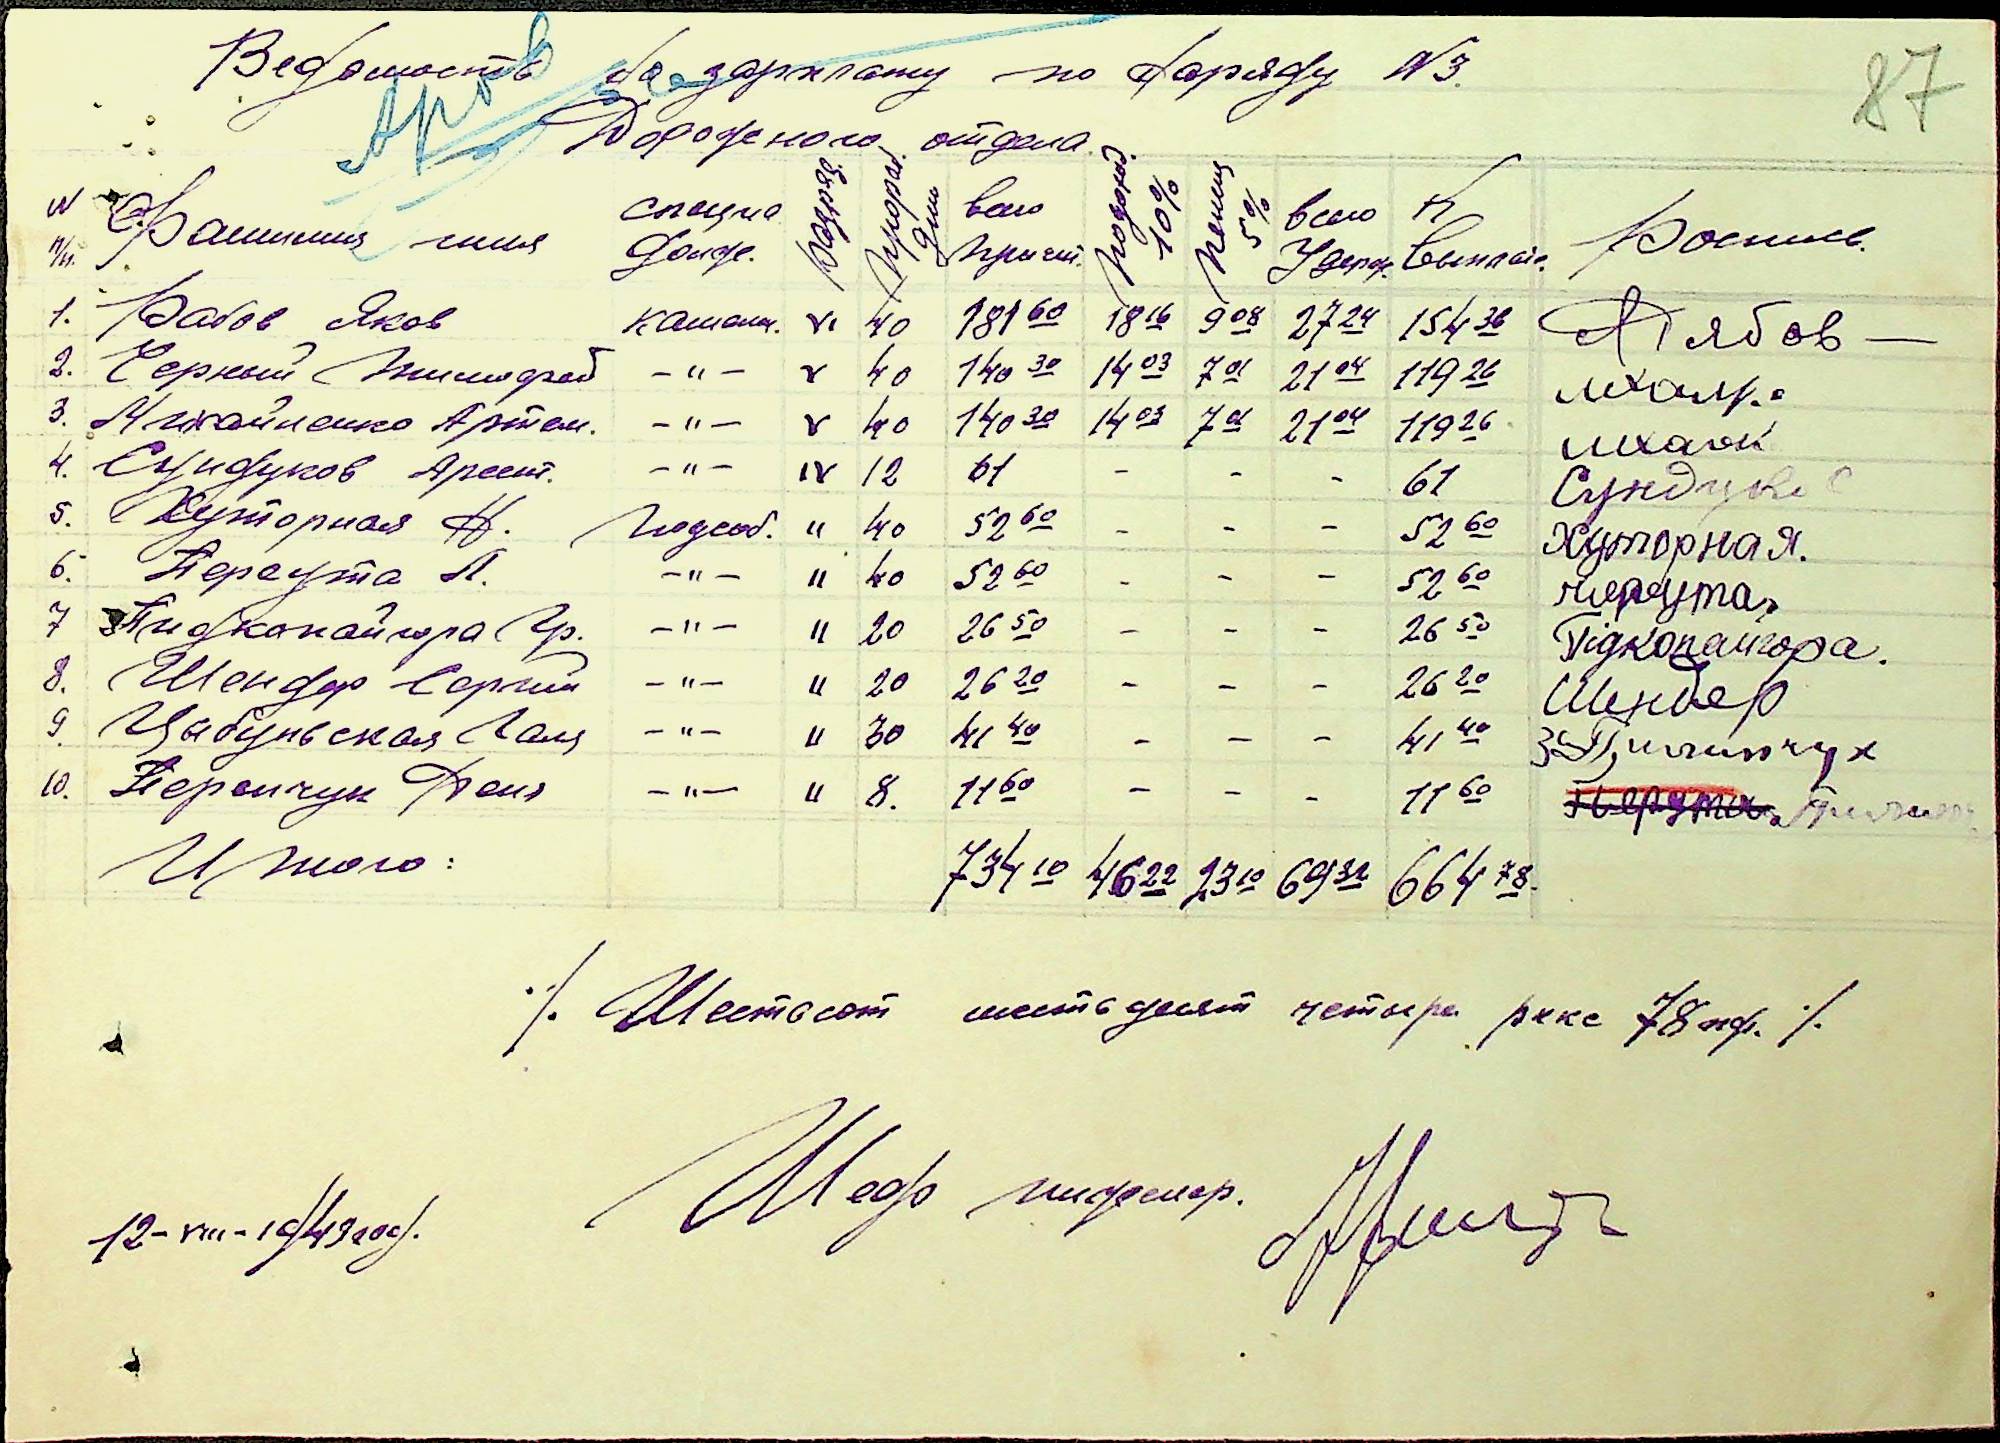 87
Ведомость на зарплату по наряду № 3.
Дорожного отдела.
№ п/п. Фамилия имя специа долж. Разряд. Проработ. дни всего причит. Подоход. 10% Пенсия 5% всего Удерж. К выплате. Роспись.
1. Рабов Яков камень. V. 40 181 60 18 16 9 08 27 24 154 36 Рябов —
2. Черный Тимофей — " — V 40 140 30 14 03 7 01 21 04 119 26
3. Михайленко Артем. — " — V 40 140 30 14 03 7 01 21 04 119 26
4. Сундуков Арсент. — " — IV 12 61 - - - 61 Сундуков
5. Хуторная Н. Подсоб. " 40 52 60 - - - 52 60 Хуторная.
6. Перерута Л. — " — " 40 52 60 - - - 52 60
7 Пидкопайгора Гр. — " — " 20 26 50 - - - 26 50 Підкопайгора.
8. Шендер Сергий — " — " 20 26 20 - - - 26 20 Шендер
9. Цыбульская Галя — " — " 30 41 40 - - - 41 40
10. " 8. 11 60 - - - 11 60
Итого: 734 10 46 22 23 10 69 32 664 78.
./. Шестьсот шестьдесят четыре рккс 78 пф. ./.
Шеф инженер.
12-VIII-1943 год.